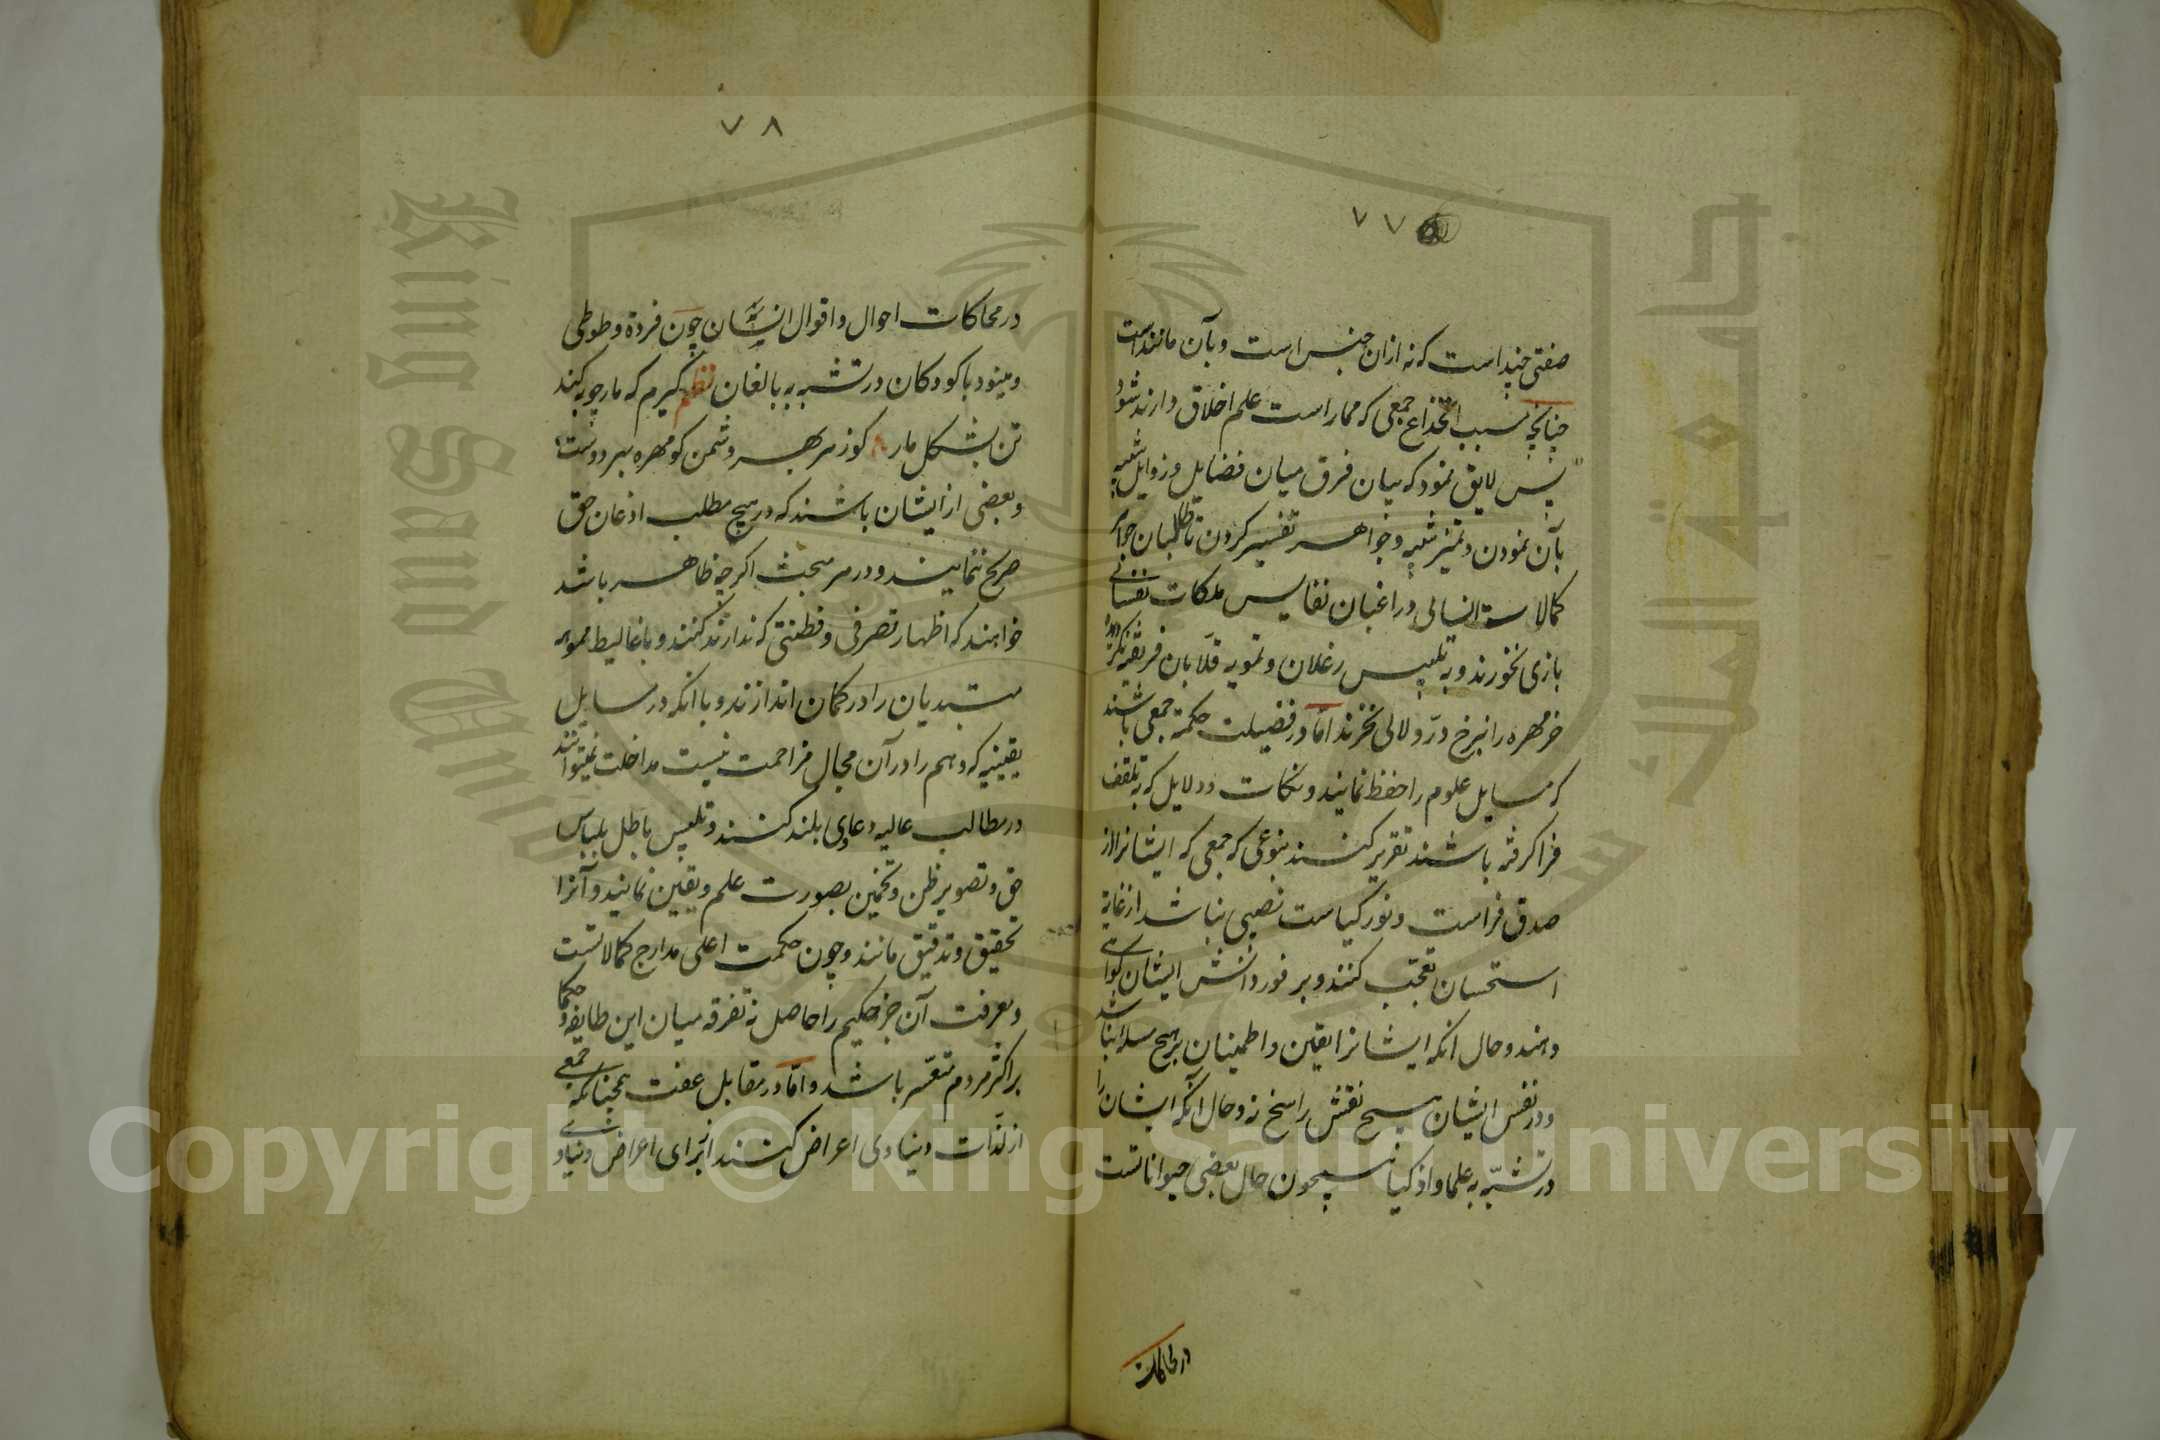 ۷۷
صفتی چند است که نه ازان جنس است و بآن مانند است
چنانچه سبب انخداع جمعی که ممارست علم اخلاق ندارند شود
پس لایق نمود که بیان فرق میان فضایل و رذایل شبیه
بآن نمودن و تمیز شبه و جواهر تفسیر کردن تا طالبان جواهر
کمالات انسانی و راغبان نفایس ملکات نفسانی
بازی نخورند و به تلبیس دغلان و تمویه قلابان فریفته نکردند
خرمهره را بنرخ درّ و لالی نخرند امّا در فضیلت حکمة جمعی باشند
که مسایل علوم را حفظ نمایند و نکات و دلایل که به تلقف
فرا کرفته باشند تقریر کنند بنوعی که جمعی که ایشانرا از
صدق فراست و نور کیاست نصیبی نباشد از غایة
استحسان تعجّب کنند و بر فور دانش ایشان کواهی
دهند و حال انکه ایشانرا یقین و اطمینان بهیچ مسله نباشد
و در نفس ایشان هیچ نقش راسخ نه و حال آنکه ایشان را
در تشبّه به علما و اذکیا همچون حال بعضی حیواناتست
در محاکات
۷۸
در محاکات احوال و اقوال انسان چون قردة و طوطی
و مینود با کودکان در تشبه به بالغان نظم کیرم که مارچوبه کند
تن بشکل مار کو زهر بهر دشمن کو مهره بهر دوست
و بعضی از ایشان باشند که در هیچ مطلب اذعان حق
صریح ننمایند و در هر مبحث اکر چه ظاهر باشد
خواهند که اظهار تصرفی و فطنتی که ندارند کنند و باغالیط مموهه
مبتدیان را در کمان اندازند و با انکه در مسایل
یقینیه که وهم را در آن مجال مزاحمت نیست مداخلت نمیتوانند
در مطالب عالیه دعاوی بلند کنند و تلبیس باطل بلباس
حق و تصویر ظن و تخمین بصورت علم و یقین نمایند و آنرا
تحقیق و تدقیق مانند و چون حکمت اعلی مدارج کمالاتست
و معرفت آن جز حکیم را حاصل نه تفرقه میان این طایفه و حکما
بر اکثر مردم متعسّر باشد و امّا در مقابل عفت همچنانکه جمعی
از لذّات دنیاوی اعراض کنند از برای اعراض دنیاوی